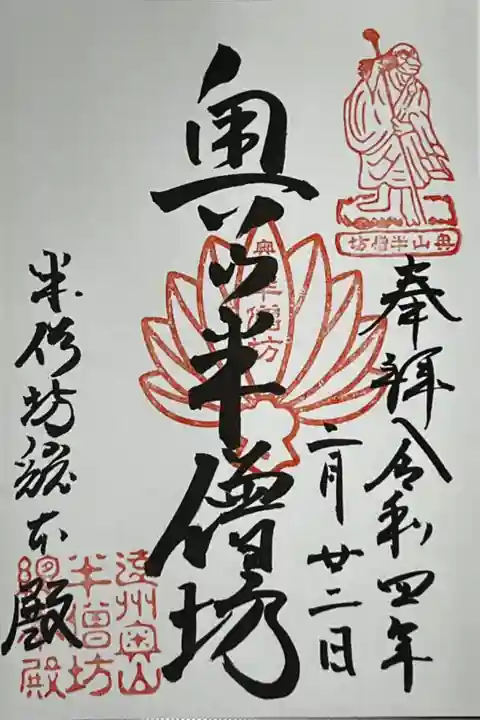 奉拝
令和四年
二月廿二日
奥山半僧坊
半僧坊總本殿
奥山半僧坊
奥山半僧坊
遠州奥山
半僧坊
總本殿